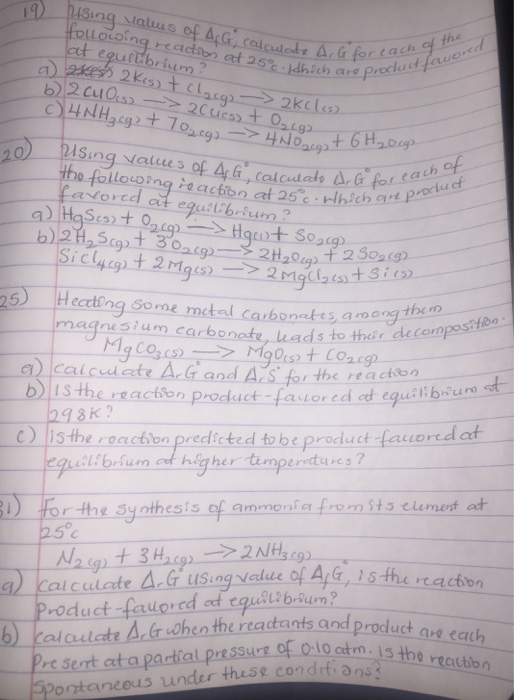 19) Using values of ΔfG°, calculate ΔrG° for each of the
following reaction at 25°c. Which are product favored
at equilibrium?
a) 2K(s) + Cl2(g) → 2KCl(s)
b) 2CuO(s) → 2Cu(s) + O2(g)
c) 4NH3(g) + 7O2(g) → 4NO2(g) + 6H2O(g)
20) Using values of ΔfG°, calculate ΔrG° for each of
the following reaction at 25°c. Which are product
favored at equilibrium?
a) HgS(s) + O2(g) → Hg(l) + SO2(g)
b) 2H2S(g) + 3O2(g) → 2H2O(g) + 2SO2(g)
SiCl4(g) + 2Mg(s) → 2MgCl2(s) + Si(s)
25) Heating some metal carbonates, among them
magnesium carbonate, leads to their decomposition.
MgCO3(s) → MgO(s) + CO2(g)
a) calculate ΔrG° and ΔrS° for the reaction
b) Is the reaction product-favored at equilibrium at
298K?
c) Is the reaction predicted to be product-favored at
equilibrium at higher temperatures?
31) For the synthesis of ammonia from its element at
25°c
N2(g) + 3H2(g) → 2NH3(g)
a) calculate ΔrG° using value of ΔfG°, is the reaction
Product-favored at equilibrium?
b) calculate ΔrG when the reactants and product are each
Present at a partial pressure of 0.10 atm. Is the reaction
Spontaneous under these conditions?